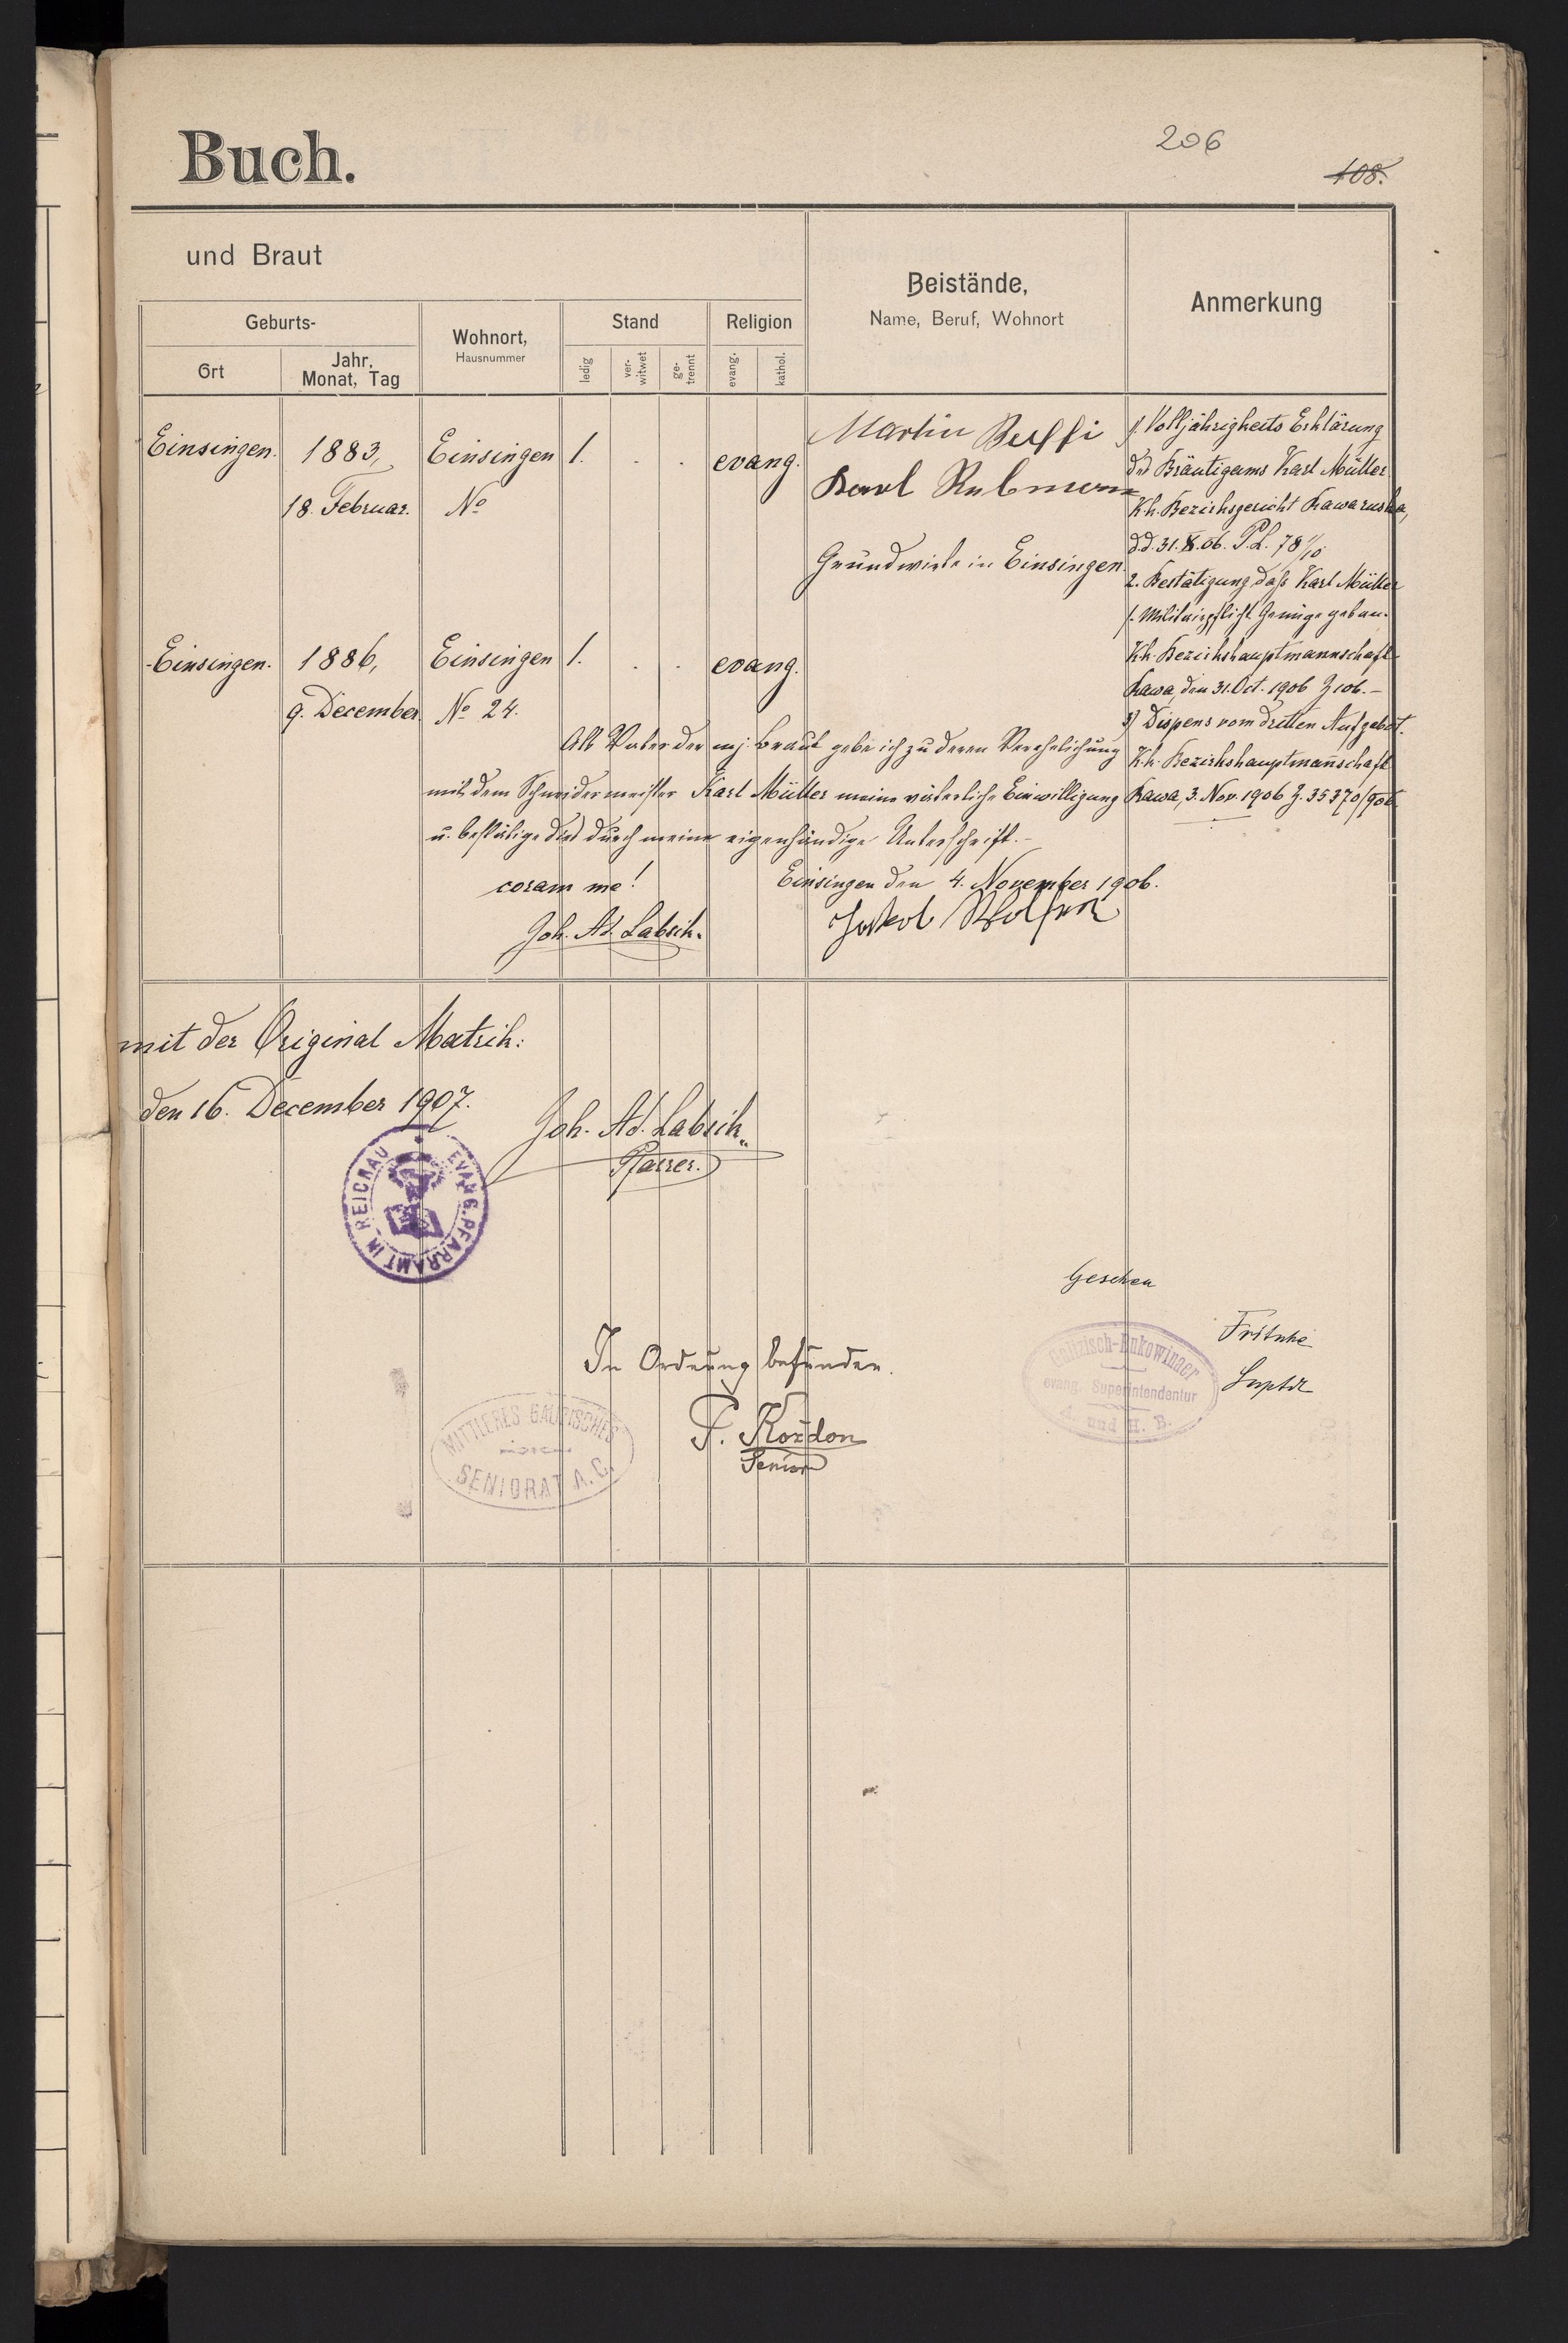 Buch.
206
108.
und Braut
Geburts-
Ort
Jahr,
Monat, Tag
Wohnort,
Hausnummer
Stand
ledig
ver-
witwet
ge-
trennt
Religion
evang.
kathol.
Beistände,
Name, Beruf, Wohnort
Anmerkung
Einsingen.
1883,
18. Februar.
Einsingen
No
1. . . evang.
Martin
Karl
Grundwirte in Einsingen.
1. Volljährigkeits Erklärung
des Bräutigams Karl Müller
K.k. Bezirksgericht Rawa ruska,
d.d. 31. X. 06. P.L. 78/10
2. Bestätigung daß Karl Müller
s. Militairpflicht Genüge getan.
K.k. Bezirkshauptmannschaft
Rawa, den 31. Oct. 1906 Z 106.–
3) Dispens vom dritten Aufgebot.
K.k. Bezirkshauptmannschaft
Rawa, 3. Nov. 1906 Z. 35370/906
Einsingen.
1886,
9. December.
Einsingen
No 24.
1. . . evang.
Als Vater der mj. Braut gebe ich zu deren Verehelichung
mit dem Schneidermeister Karl Müller meine väterliche Einwilligung
u. bestätige dies durch meine eigenhändige Unterschrift.–
coram me!
Einsingen den 4. November 1906.
Joh. Ad. Labsik.
Jakob
mit der Original Matrik:
den 16. December 1907.
Joh. Ad. Labsik
Pfarrer.
EVANG. PFARRAMT IN REICHAU
Gesehen
Galizisch-Bukowinaer
evang. Superintendentur
A. und H. B.
Fritsche
Suptdt
In Ordnung befunden.
MITTLERES GALIZISCHES
SENIORAT A. C.
F. Koždon
Senior